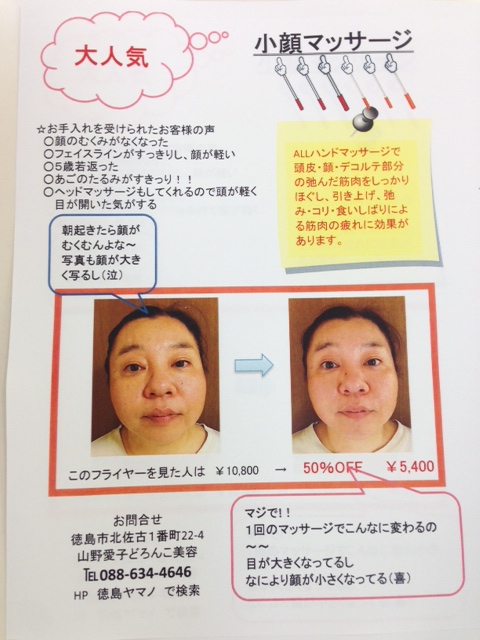 大人気
小顔マッサージ
☆お手入れを受けられたお客様の声
○顔のむくみがなくなった
○フェイスラインがすっきりし、顔が軽い
○5歳若返った
○あごのたるみがすきっり！！
○ヘッドマッサージもしてくれるので頭が軽く
目が開いた気がする
ALLハンドマッサージで
頭皮・顔・デコルテ部分
の弛んだ筋肉をしっかり
ほぐし、引き上げ、弛
み・コリ・食いしばりによ
る筋肉の疲れに効果が
あります。
朝起きたら顔が
むくむんよな～
写真も顔が大き
く写るし（泣）
このフライヤーを見た人は ￥10,800 → 50%OFF ￥5,400
お問合せ
徳島市北佐古1番町22-4
山野愛子どろんこ美容
℡088-634-4646
HP 徳島ヤマノ で検索
マジで！！
1回のマッサージでこんなに変わるの
～～
目が大きくなってるし
なにより顔が小さくなってる（喜）